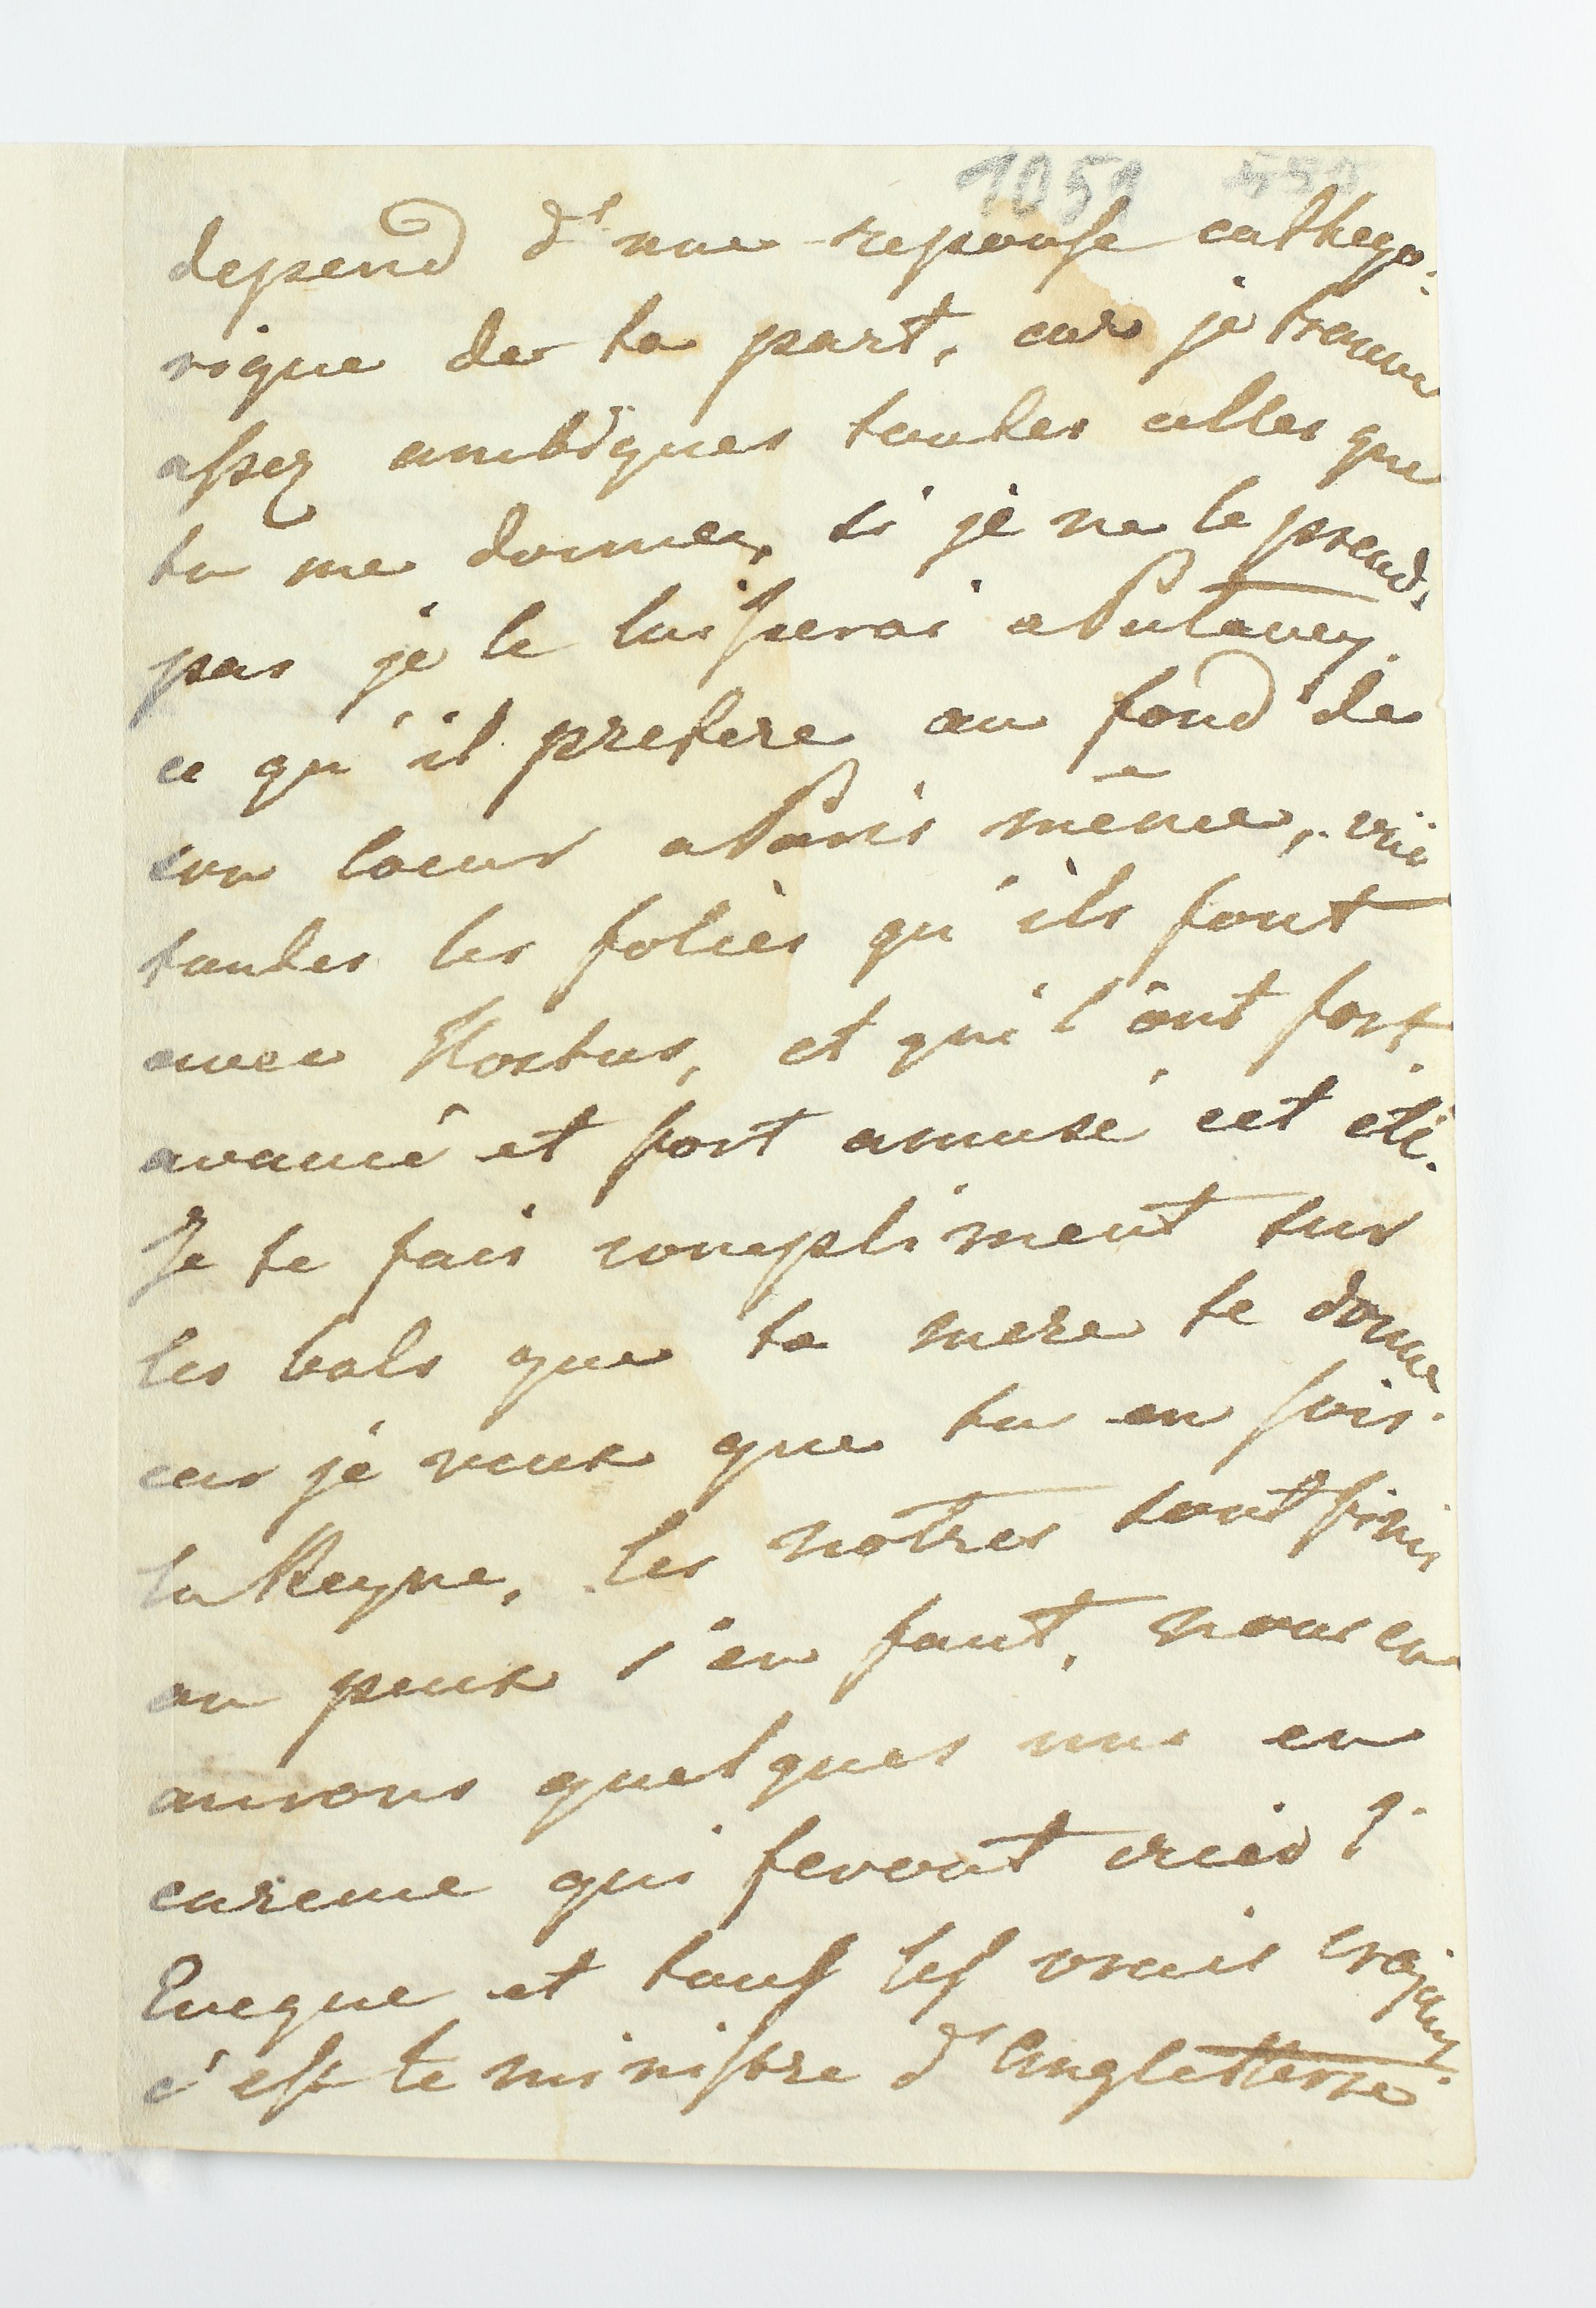 1051 550
depend d'une reponse cathego:
rique de ta part, car je trouve
assez ambigues toutes celles que
tu me donnes, si je ne le prends
pas je le laisserai a Putavey.
ce qu'il prefere au fond de
son coeur a Paris même, vû
toutes les folies qu'ils font
avec Hortus, et qui l'ont fort
avancé et fort amusé cet eté.
Je te fais compliment sur
les bals que ta mere te donne
car je veux que tu en sois
la Reyne, les notres sont finis
ou peux s'en faut, nous en
aurons quelques uns en
careme qui feront crier l'
Eveque et tous les vrais croyans,
c'est le ministre d'Angletterre